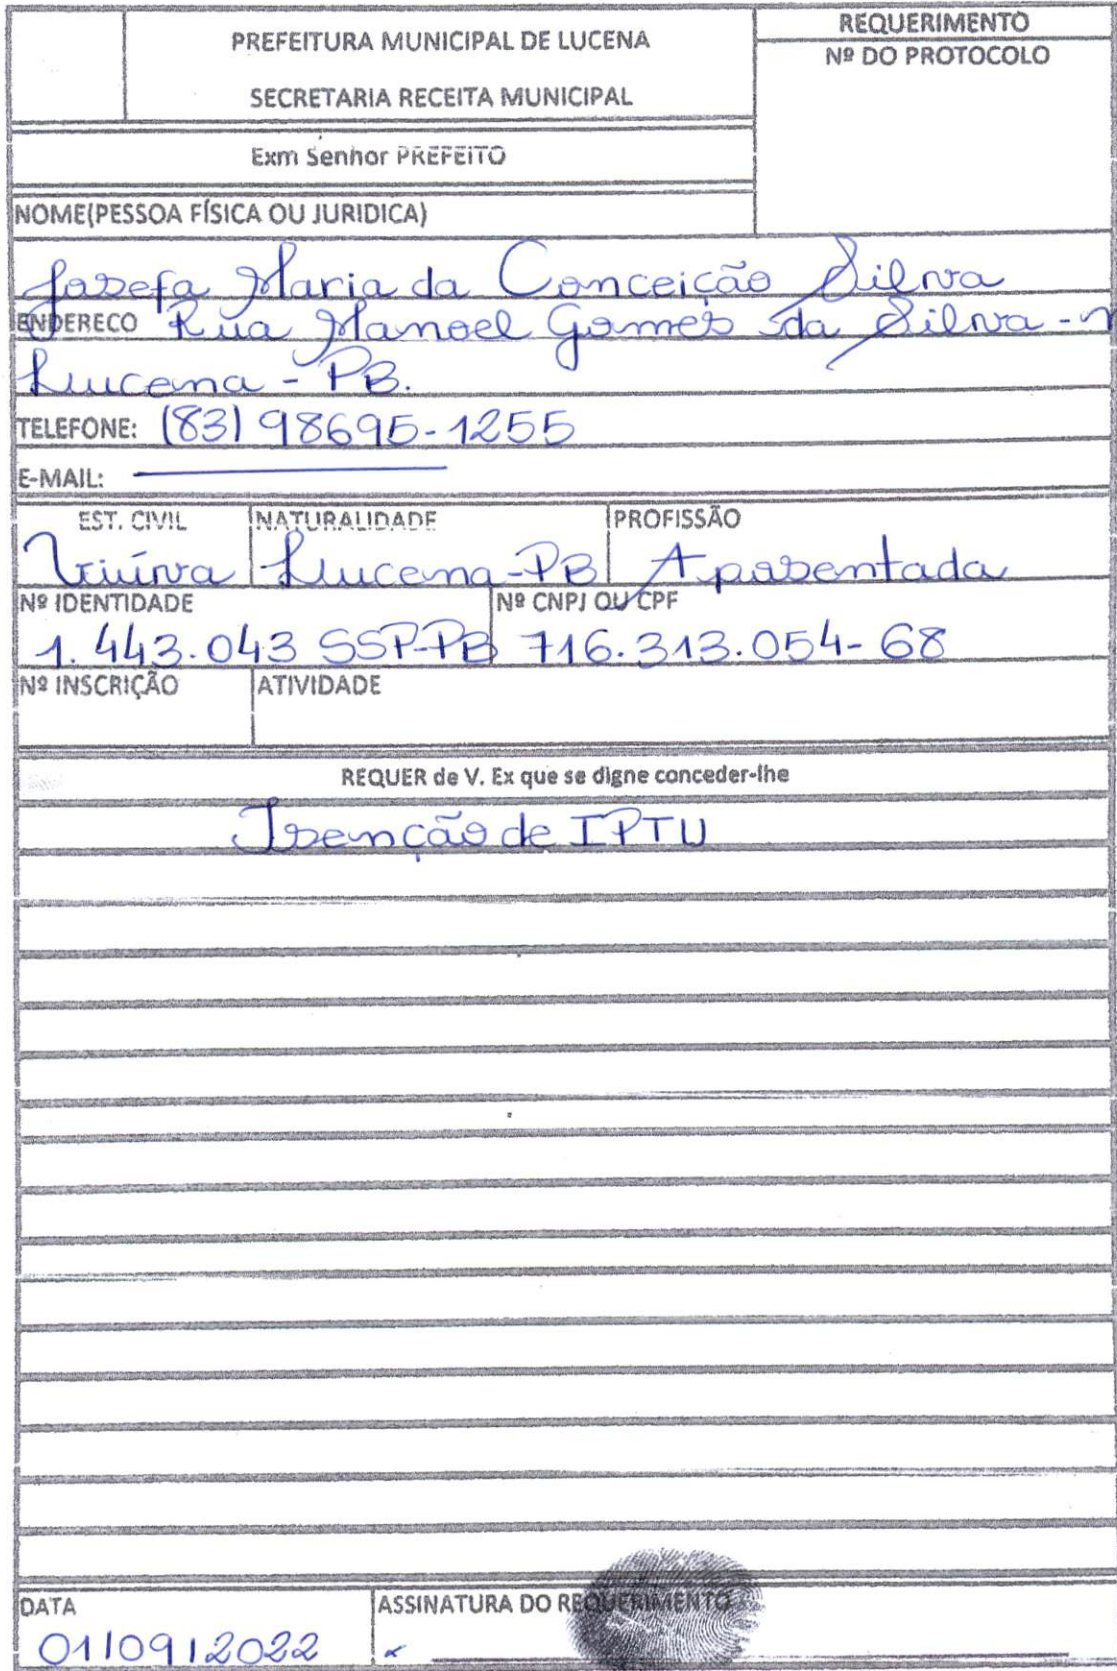 PREFEITURA MUNICIPAL DE LUCENA
SECRETARIA RECEITA MUNICIPAL
REQUERIMENTO
Nº DO PROTOCOLO
Exm Senhor PREFEITO
NOME(PESSOA FÍSICA OU JURIDICA)
Josefa Maria da Conceição Silva
ENDERECO Rua Manoel Gomes da Silva -
Lucena - PB.
TELEFONE: (83) 98695-1255
E-MAIL:
EST. CIVIL NATURALIDADE PROFISSÃO
Viúva Lucena-PB Aposentada
Nº IDENTIDADE Nº CNPJ OU CPF
1.443.043 SSP-PB 716.313.054-68
Nº INSCRIÇÃO ATIVIDADE
REQUER de V. Ex que se digne conceder-lhe
Isenção de IPTU
DATA ASSINATURA DO REQUERIMENTO
01/09/2022 x